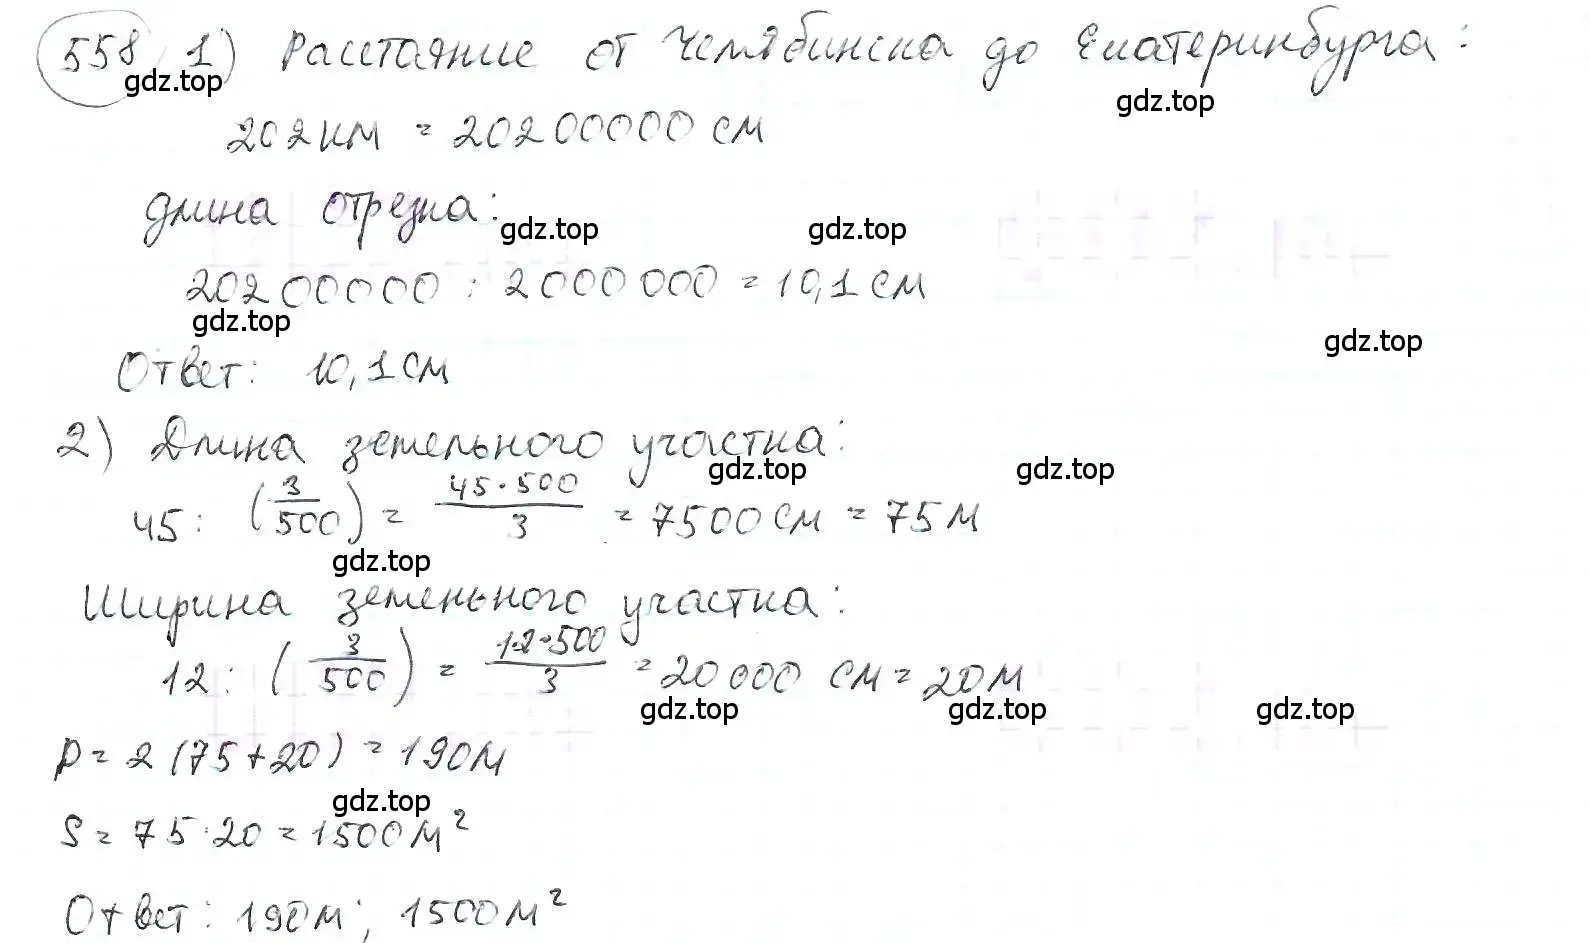 558 1) Расстояние от Челябинска до Екатеринбурга:
gdz.top
gdz.top
202 км = 20200000 см
длина отрезка:
gdz.top gdz.top
20200000 : 2000000 = 10,1 см
gdz.top
gdz.top
Ответ: 10,1 см
2) Длина земельного участка:
gdz.top gdz.top
45 : (3/500) = 45·500/3 = 7500 см = 75 м
gdz.top
Ширина земеньного участка:
12 : (3/500) = 12·500/3 = 20000 см = 20 м
gdz.top gdz.top gdz.top
P = 2 (75+20) = 190 м
gdz.top
S = 75·20 = 1500 м²
Ответ: 190 м; 1500 м²